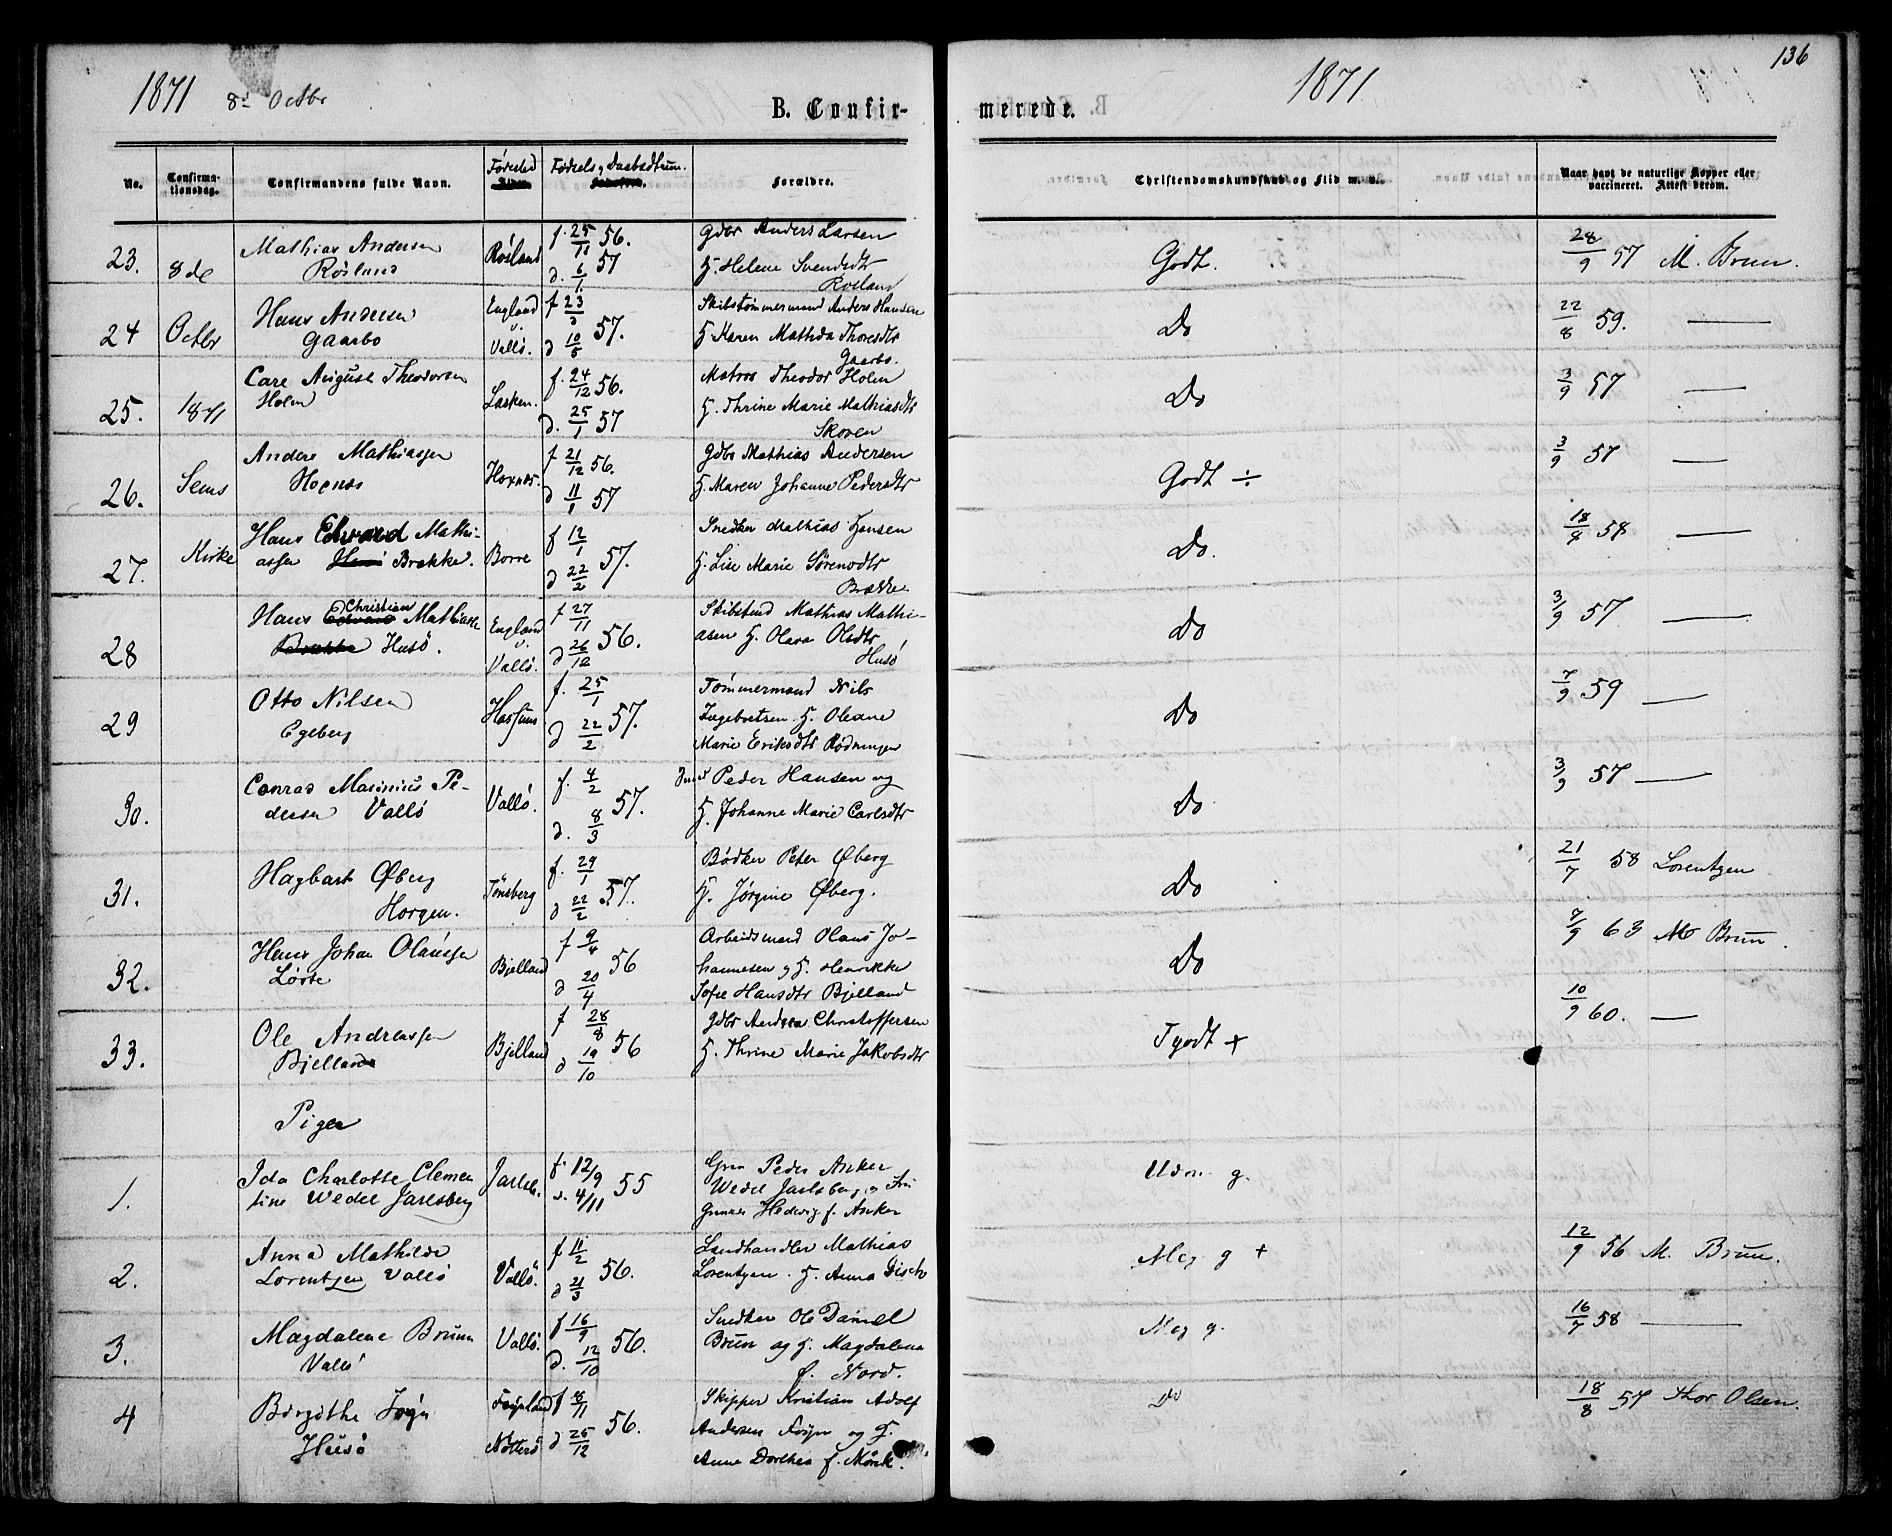 1871 8de Octbr
B. Confir-
No.
Confirma-
tionsdag.
Confirmandens fulde Navn.
Fødested
Fødsels og Daabsdatum.
Forældre.
23. 8de
Mathias Andersen
Røsland
Røsland
f. 25/11 56.
d. 6/1 57
Gdbr Anders Larsen
H. Helene Svendsdtr
Røsland
24 Octbr
Hans Andersen
Gaarbo
England
v.
Vallö.
f 23/2
d 10/5 57.
Skibstømmermand Anders Hansen
H. Karen Mathea Thoresdtr
Gaarbo.
25. 1871
Carl August Theodorsen
Holm
Lasken.
f. 24/12 56.
d. 25/1 57
Matros Theodor Holm
H. Thrine Marie Mathiasdtr
Skoven
26. Sems
Anders Mathiassen
Hoxnes
Hoxnes.
f 21/12 56.
d 11/1 57
Gdbr Mathias Andersen
H. Maren Johanne Pedersdtr
27. Kirke
Hans Edvard Mathi-
assen Brække.
Borre
f 12/1
d 22/2 57.
Snedker Mathias Hansen
H. Lise Marie Sörensdtr
Brække
28
Hans Christian Mathiass
Husö.
England
v.
Vallö.
f 27/11
d 26/12 56.
Skibstmd Mathias Mathi-
asen H. Olava Olsdtr
Husö
29
Otto Nilsen
Egeberg
Hassum
f. 25/1
d 22/2 57.
Tömmermand Nils
Ingebretsen H. Oleane
Marie Eriksdtr Rødningen
30.
Conrad Marinius Pe-
dersen Vallö
Vallö.
f. 4/2
d. 8/3 57.
Peder Hansen og
H. Johanne Marie Carlsdtr
31.
Hagbart Øberg
Horgen.
Tönsberg
f. 29/1
d 22/2 57.
Bödker Peter Øberg
H. Jørgine Øberg.
32.
Hans Johan Olaussen
Lörte
Bjelland
f 9/4
d 20/4 56
Arbeidsmand Olaus Jo-
hannesen og H. Henrikke
Sofie Hansdtr Bjelland
33.
Ole Andreassen
Bjelland
Bjelland
f 28/8
d 19/10 56
Gdbr Andrea Christoffersen
H. Thrine Marie Jakobsdtr
Piger
1.
Ida Charlotte Clemen
tine Wedel Jarlsberg
Jarlsb.
f. 12/9
d. 4/11 55
Grev Peder Anker
Wedel Jarlsberg og Fru
Hedevig f. Anker
2.
Anna Mathilde
Lorentzen Vallö
Vallö.
f 11/2
d 21/3 56.
Landhandler Mathias
Lorentzen. H. Anna Disch
3.
Magdalene Bruun
Vallö
Vallö.
f 16/9
d. 12/10 56.
Snedker Ole Daniel
Brun og H. Magdalena
f. Nord.
4
Birgithe Föyn
Husö
Föynland
Nötterö
f 18/11
d 25/12 56.
Skipper Kristian Adolf
Andersen Föyn og H.
Anne Dorthea f. Mörk.
136
1871
merede.
Christendomskundskab og Flid m. v.
Naar havt de naturlige Kopper eller
vaccineret. Attest derom.
Godt. 28/9 57 M. Brun.
Do 22/8 59. —
Do 3/9 57 —
Godt ÷ 3/9 57 —
Do. 18/8 58 —
Do 3/9 57. —
Do 7/9 59 —
Do 3/9 57 —
Do 21/7 58 Lorentzen
Do 7/9 63 M Brun.
Tgodt + 10/9 60. —
Udm. g.
Meg g + 12/9 56 M. Brun.
Meg g. 16/7 58 —
Do 18/8 57 Thor Olsen.